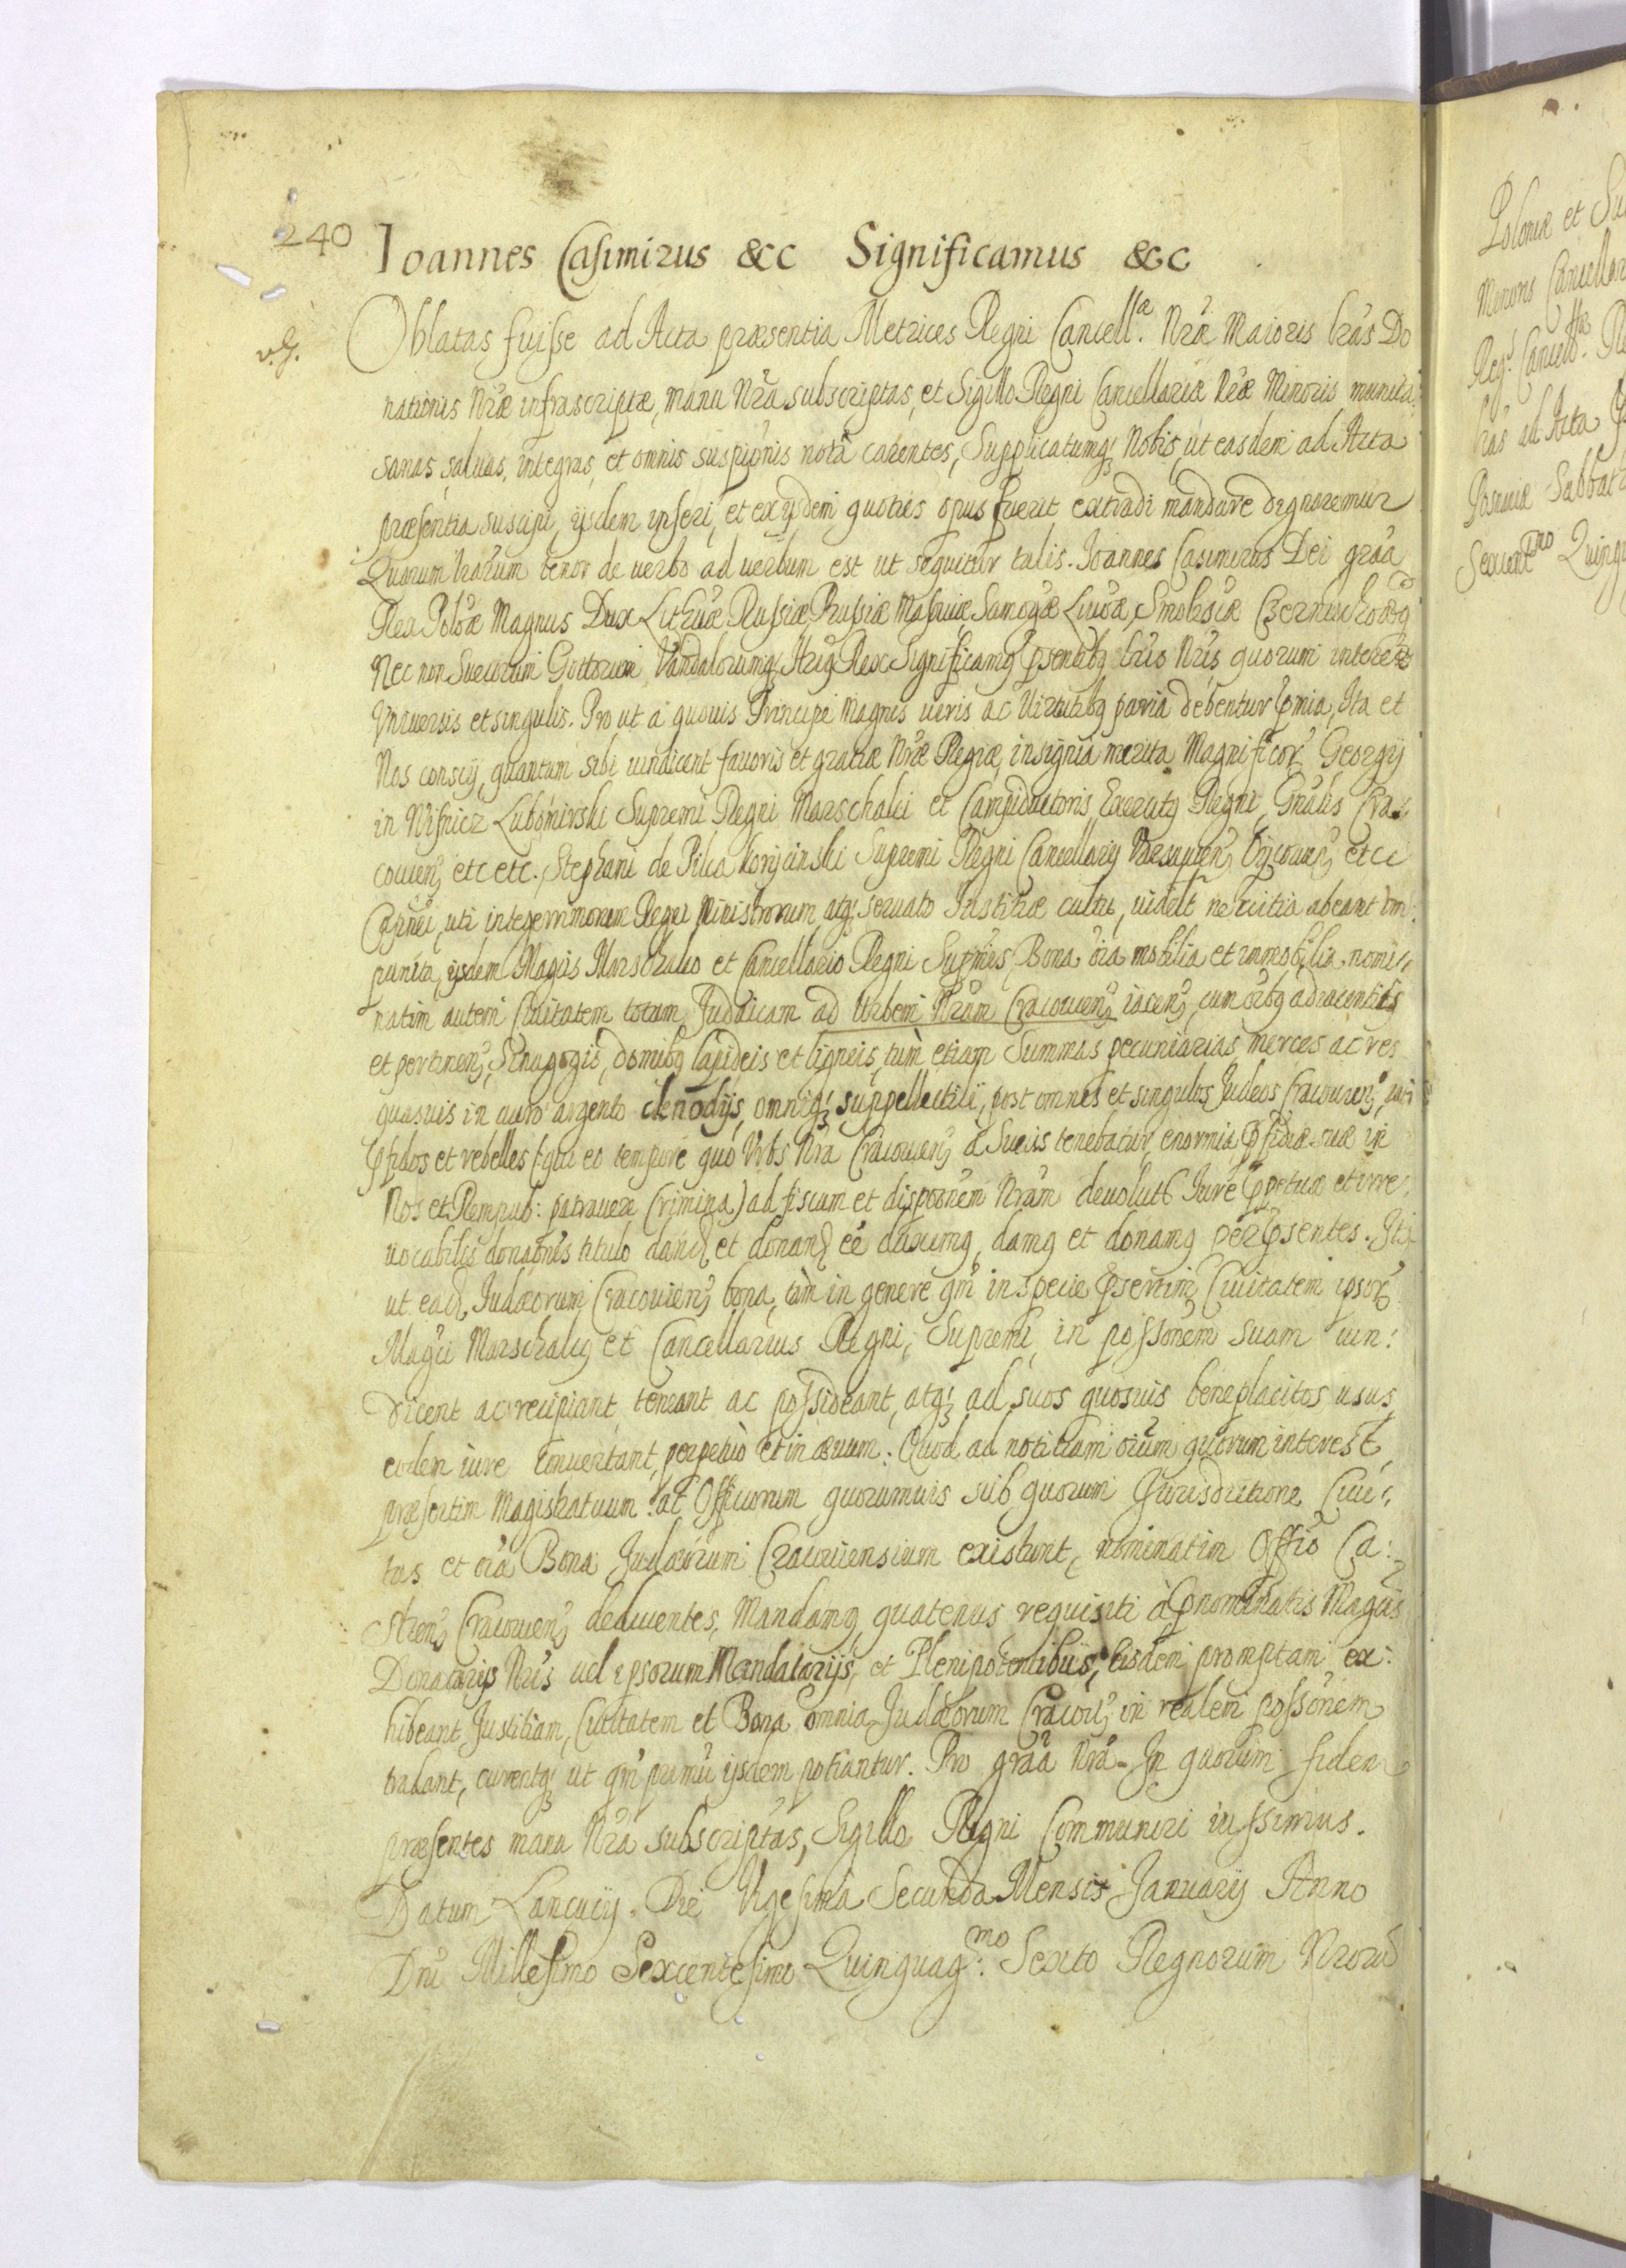 240
Ioannes Casimirus &c Significamus &c
v. G.
Oblatas fuisse ad Acta præsentia Metrices Regni Cancell.æ Nrã Maioris lrãs Do
nationis Nræ infrascriptæ, manu Nrã subscriptas, et Sigillo Regni Cancellariæ Nræ Minoris munita
sanas, saluas, integras, et omnis suspiõnis notâ carentes, Supplicatumq; Nobis, ut easdem ad Acta
præsentia suscipi, ysdem inseri, et ex ysdem quoties opus fuerit extradi mandare dignaremur
Quarum lrarum tenor de uerbo ad uerbum est ut sequitur talis. Ioannes Casimirus Dei grãa
Rex Polõæ Magnus Dux Lithuæ Russiæ Prussiæ Masouiæ Samogæ Liuõæ, Smolesciæ Czerniechouiæq
Nec non Suecorum Gottorum Vandalorumq; Hrius Rex Significamq pñtibq lrĩs Nrĩs quorum interest
Vniuersis et singulis. Pro ut á quouis Principe magnis uiris ac Uirtutibq paria debentur pmia, Ita et
Nos conscij, quantum sibi uindicent fauoris et gratiæ Nræ Regiæ, insignia merita Magnificor Georgij
in Wisnicz Lubomirski Supremi Regni Marschalci et Campiductoris Exercitq Regni Gñalis Cra:
couien, etc etc. Stephani de Pilca Koryčinski Supremi Regni Cancellarij Oyjcouien, etcc
Capnei, uti integerrimorum Regni Ministrorum, atq; seruato Iustitiæ cultu, uidelt ne uitia abeant im:
punita, ijsdem Magcis Marschalco et Cancellario Regni Supmis, Bona oĩa mobilia et immobilia nomi:
natim autem Ciuitatem totam Judaicam ad Urbem Nrãm Cracouien, iacen, cum oĩbq adiacentijs
et pertinen, Sinagogis, domibq lapideis et ligneis, tùm etiam Summas pecuniarias merces ac res
quasuis in auro argento clenodijs, omniq; suppellectili, post omnes et singulos Judeos Cracouien, uti
pfidos et rebelles (qui eo tempore quo Vrbs Nrã Cracouien, á Suecis tenebatur, enormia pfidiæ suæ in
Nos et Rempub: patrauere Crimina) ad fiscum et disponem Nrãm deuoluta Iure ppetuæ et irre:
uocabilis donationis titulo dand, et donand ẽe duximq, damq et donamq per psentes. Ita
ut ead, Judæorum Cracouien, bona, tàm in genere qm in specie psertim Ciuitatem ipsor
Magci Marschalcq et Cancellarius Regni, Supremi, in possonem suam uin:
dicent ac recipiant, teneant ac possideant, atq; ad suos quosuis beneplacitos usus,
eodem iure conuertant, perpetuò et in æuum. Quod ad notitiam oĩum quorum interest,
præsertim Magistratuum ac Officiorum quorumuis sub quorum Jurisdictione Ciui:
tas et oĩa Bona Judæorum Cracouiensium existunt, nominatim Offio Ca:
stren, Cracouien, deducentes, Mandamq, quatenus requisiti à pnominatis Magcis
Donatarijs Nris uel ipsorum Mandatarijs, et Plenipotentibus, eisdem promptam ex:
hibeant Justitiam, Ciuitatem et Bona omnia Judæorum Cracou, in realem possonem
tradant, curentq; ut qm primũ ijsdem potiantur. Pro graã Nrã. In quorum fidem
præsentes manu Nrã subscriptas, Sigillo Regni Communiri iussimus.
Datum Lancucij. Die Vigesima Secunda Mensis Januarij Anno
Dnĩ Millesimo Sexcentesimo Quinquag:mo Sexto Regnorum Nrorũ
Poloniæ et Su
Minoris Cancellar
Reg. Cancell. Re
lrãs ad Acta
Posnaniæ Sabbath
Sexcent.mo Quinqu